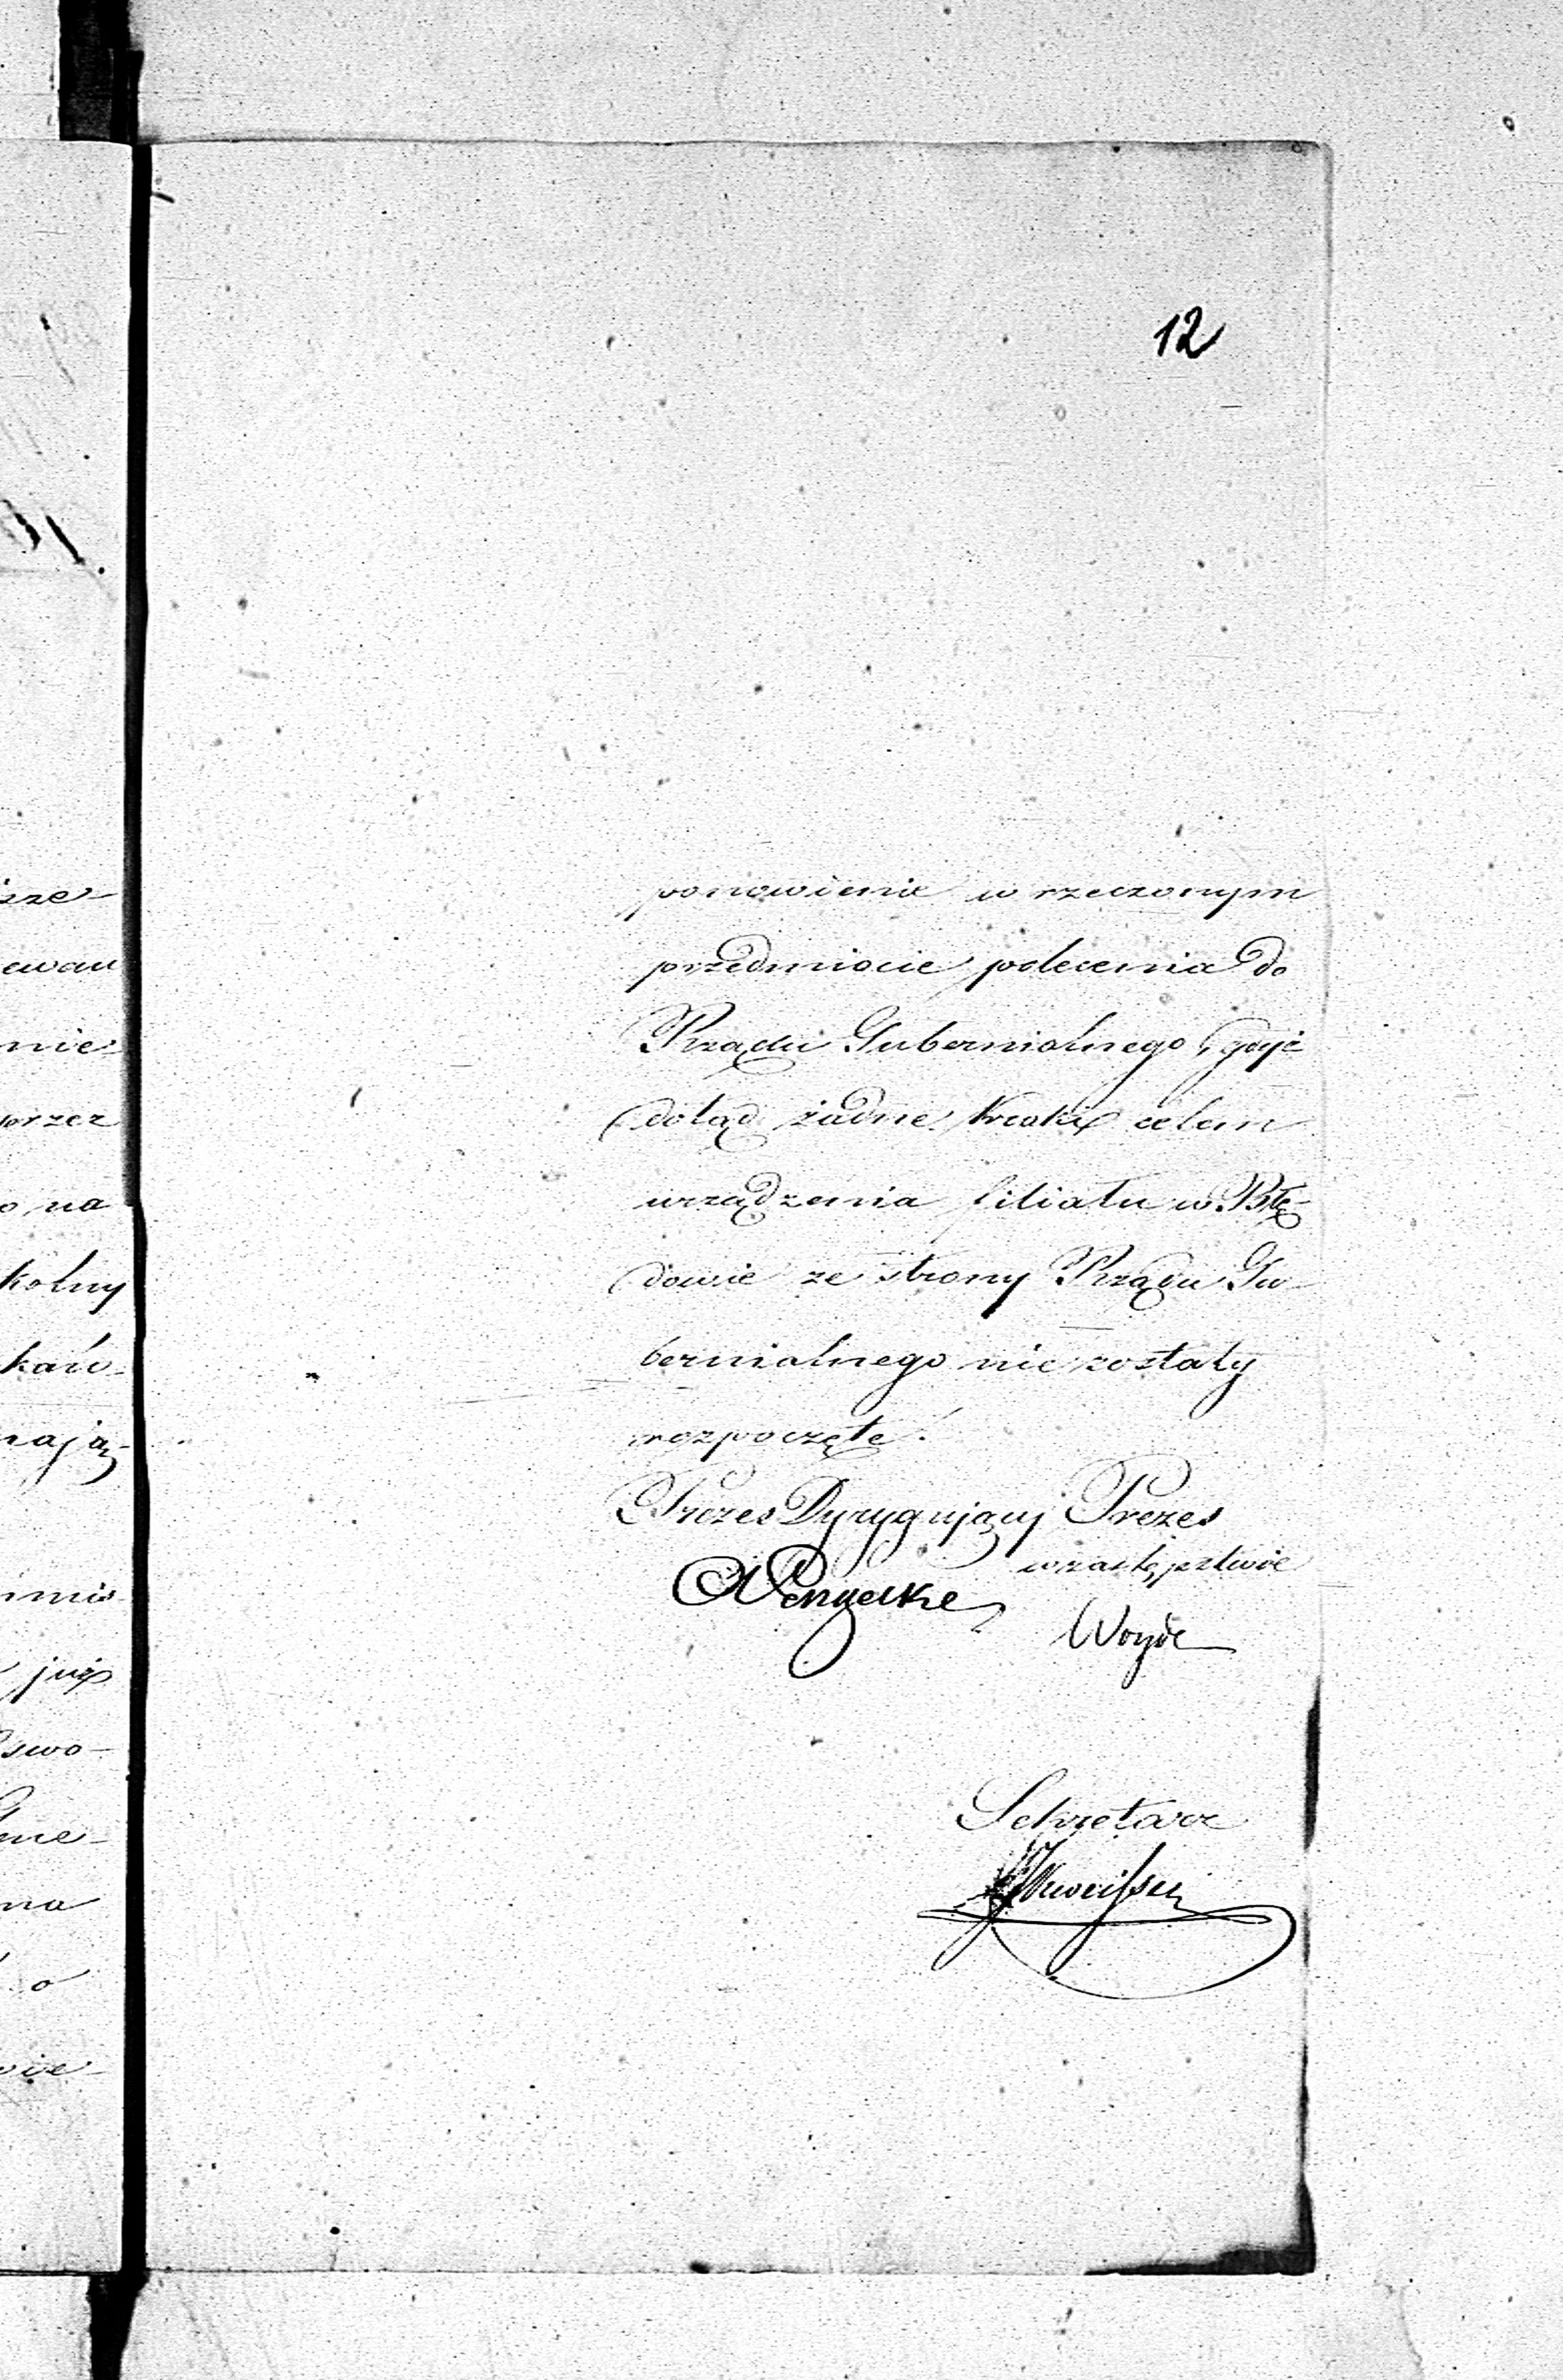 12
ponowienie w rzeczonym
przedmiocie polecenia do
Rządu Gubernialnego, gdyż
dotąd żadne kroki celem
urządzenia filiału w Błę-
dowie ze strony Rządu Gu-
bernialnego nie zostały
rozpoczęte.
Prezes Dyrygujący Prezes
w zastępstwie
Woyde
Sekretarz
kolny
nie
przez
o na
kań-
mają
już
swo-
na
o